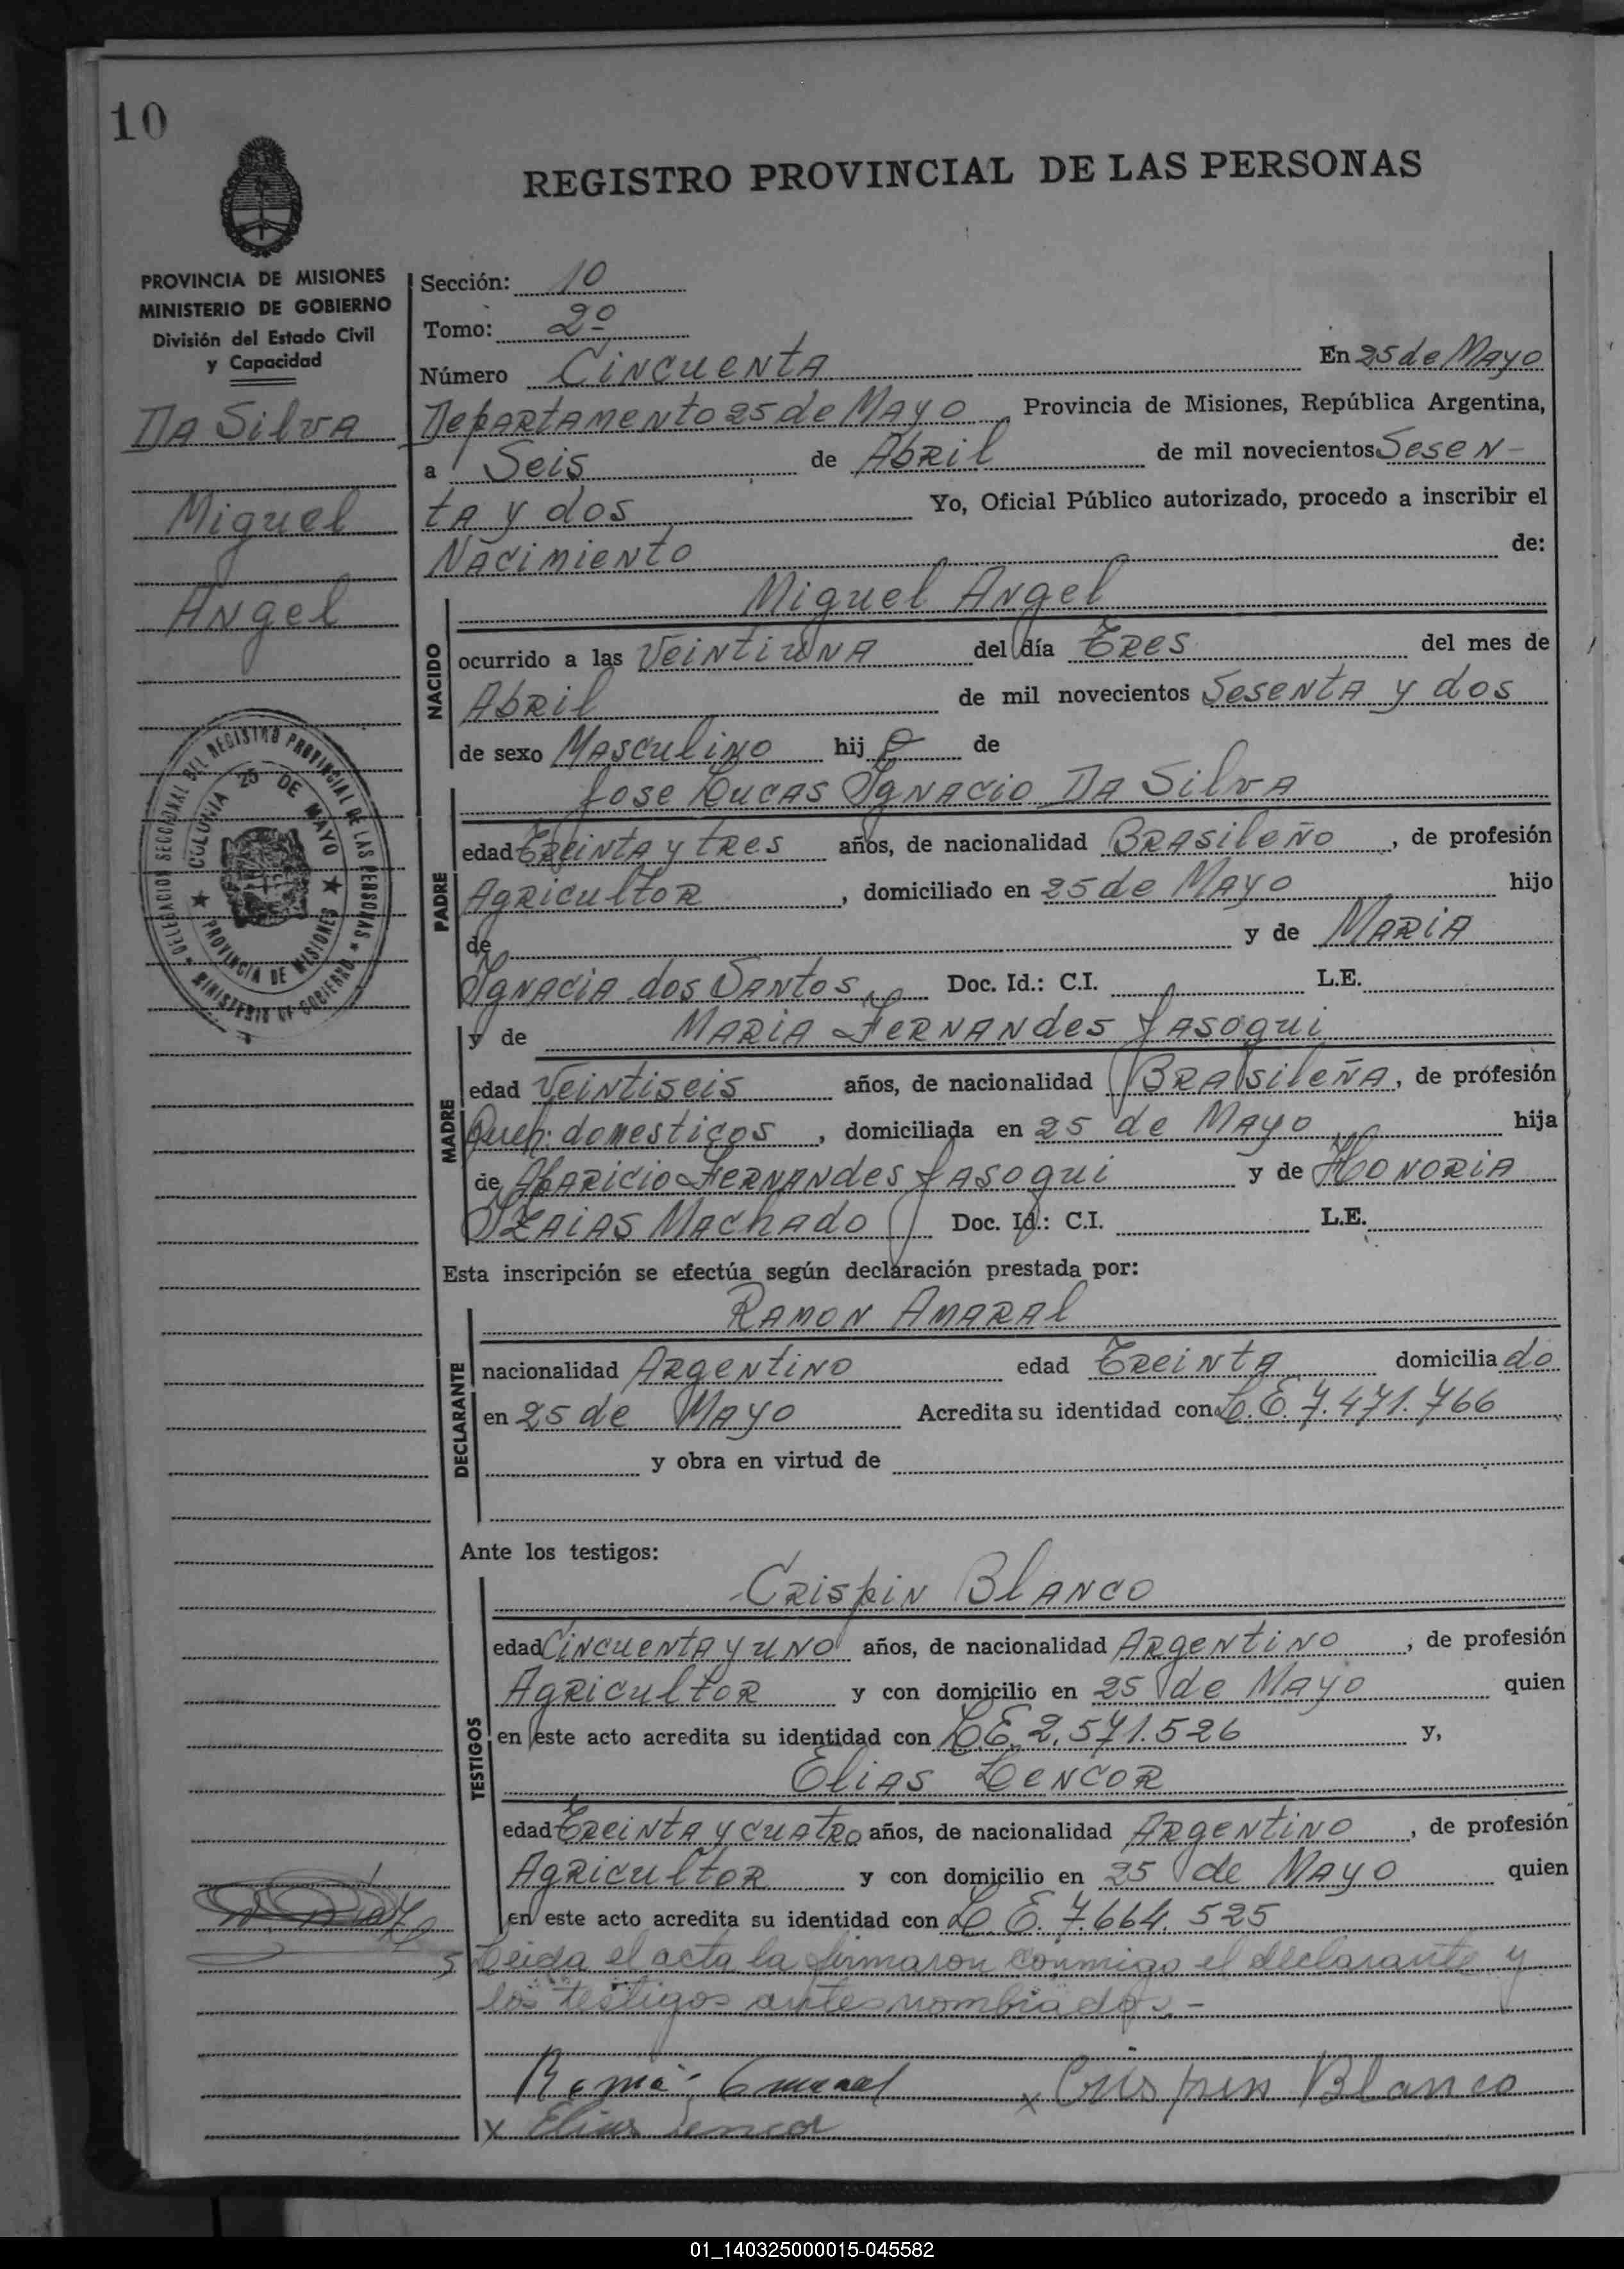 10
REGISTRO PROVINCIAL DE LAS PERSONAS
PROVINCIA DE MISIONES
MINISTERIO DE GOBIERNO
División del Estado Civil
y Capacidad
Da Silva
Miguel
Angel
DELEGACION SECCIONAL DEL REGISTRO PROVINCIAL DE LAS PERSONAS ★ MINISTERIO DE GOBIERNO ★
COLONIA 25 DE MAYO ★ PROVINCIA DE MISIONES ★
Sección: 10
Tomo: 2º
Número Cincuenta En 25 de Mayo
Departamento 25 de Mayo, Provincia de Misiones, República Argentina,
a Seis de Abril de mil novecientos Sesen-
ta y dos Yo, Oficial Público autorizado, procedo a inscribir el
Nacimiento de:
NACIDO
Miguel Angel
ocurrido a las Veintiuna del día Tres del mes de
Abril de mil novecientos Sesenta y dos
de sexo Masculino hijo de
PADRE
Jose Lucas Ignacio Da Silva
edad Treinta y tres años, de nacionalidad Brasileño, de profesión
Agricultor, domiciliado en 25 de Mayo hijo
de y de Maria
Ignacia dos Santos Doc. Id.: C.I. L.E.
y de Maria Fernandes Jasogui
MADRE
edad Veintiseis años, de nacionalidad Brasileña, de profesión
Queh: domesticos, domiciliada en 25 de Mayo hija
de Aparicio Fernandes Jasogui y de Honoria
Izaias Machado Doc. Id.: C.I. L.E.
Esta inscripción se efectúa según declaración prestada por:
DECLARANTE
Ramon Amaral
nacionalidad Argentino edad Treinta domiciliado
en 25 de Mayo Acredita su identidad con L.E. 7.471.766
y obra en virtud de
Ante los testigos:
TESTIGOS
Crispin Blanco
edad Cincuenta y uno años, de nacionalidad Argentino, de profesión
Agricultor y con domicilio en 25 de Mayo quien
en este acto acredita su identidad con L.E. 2.571.526 y,
Elias Lencor
edad Treinta y cuatro años, de nacionalidad Argentino, de profesión
Agricultor y con domicilio en 25 de Mayo quien
en este acto acredita su identidad con L.E. 7.664.525
Leida el acta la firmaron conmigo el declarante y
los testigos antes nombrados.-
x Crispin Blanco
x Elias Lencor
01_140325000015-045582